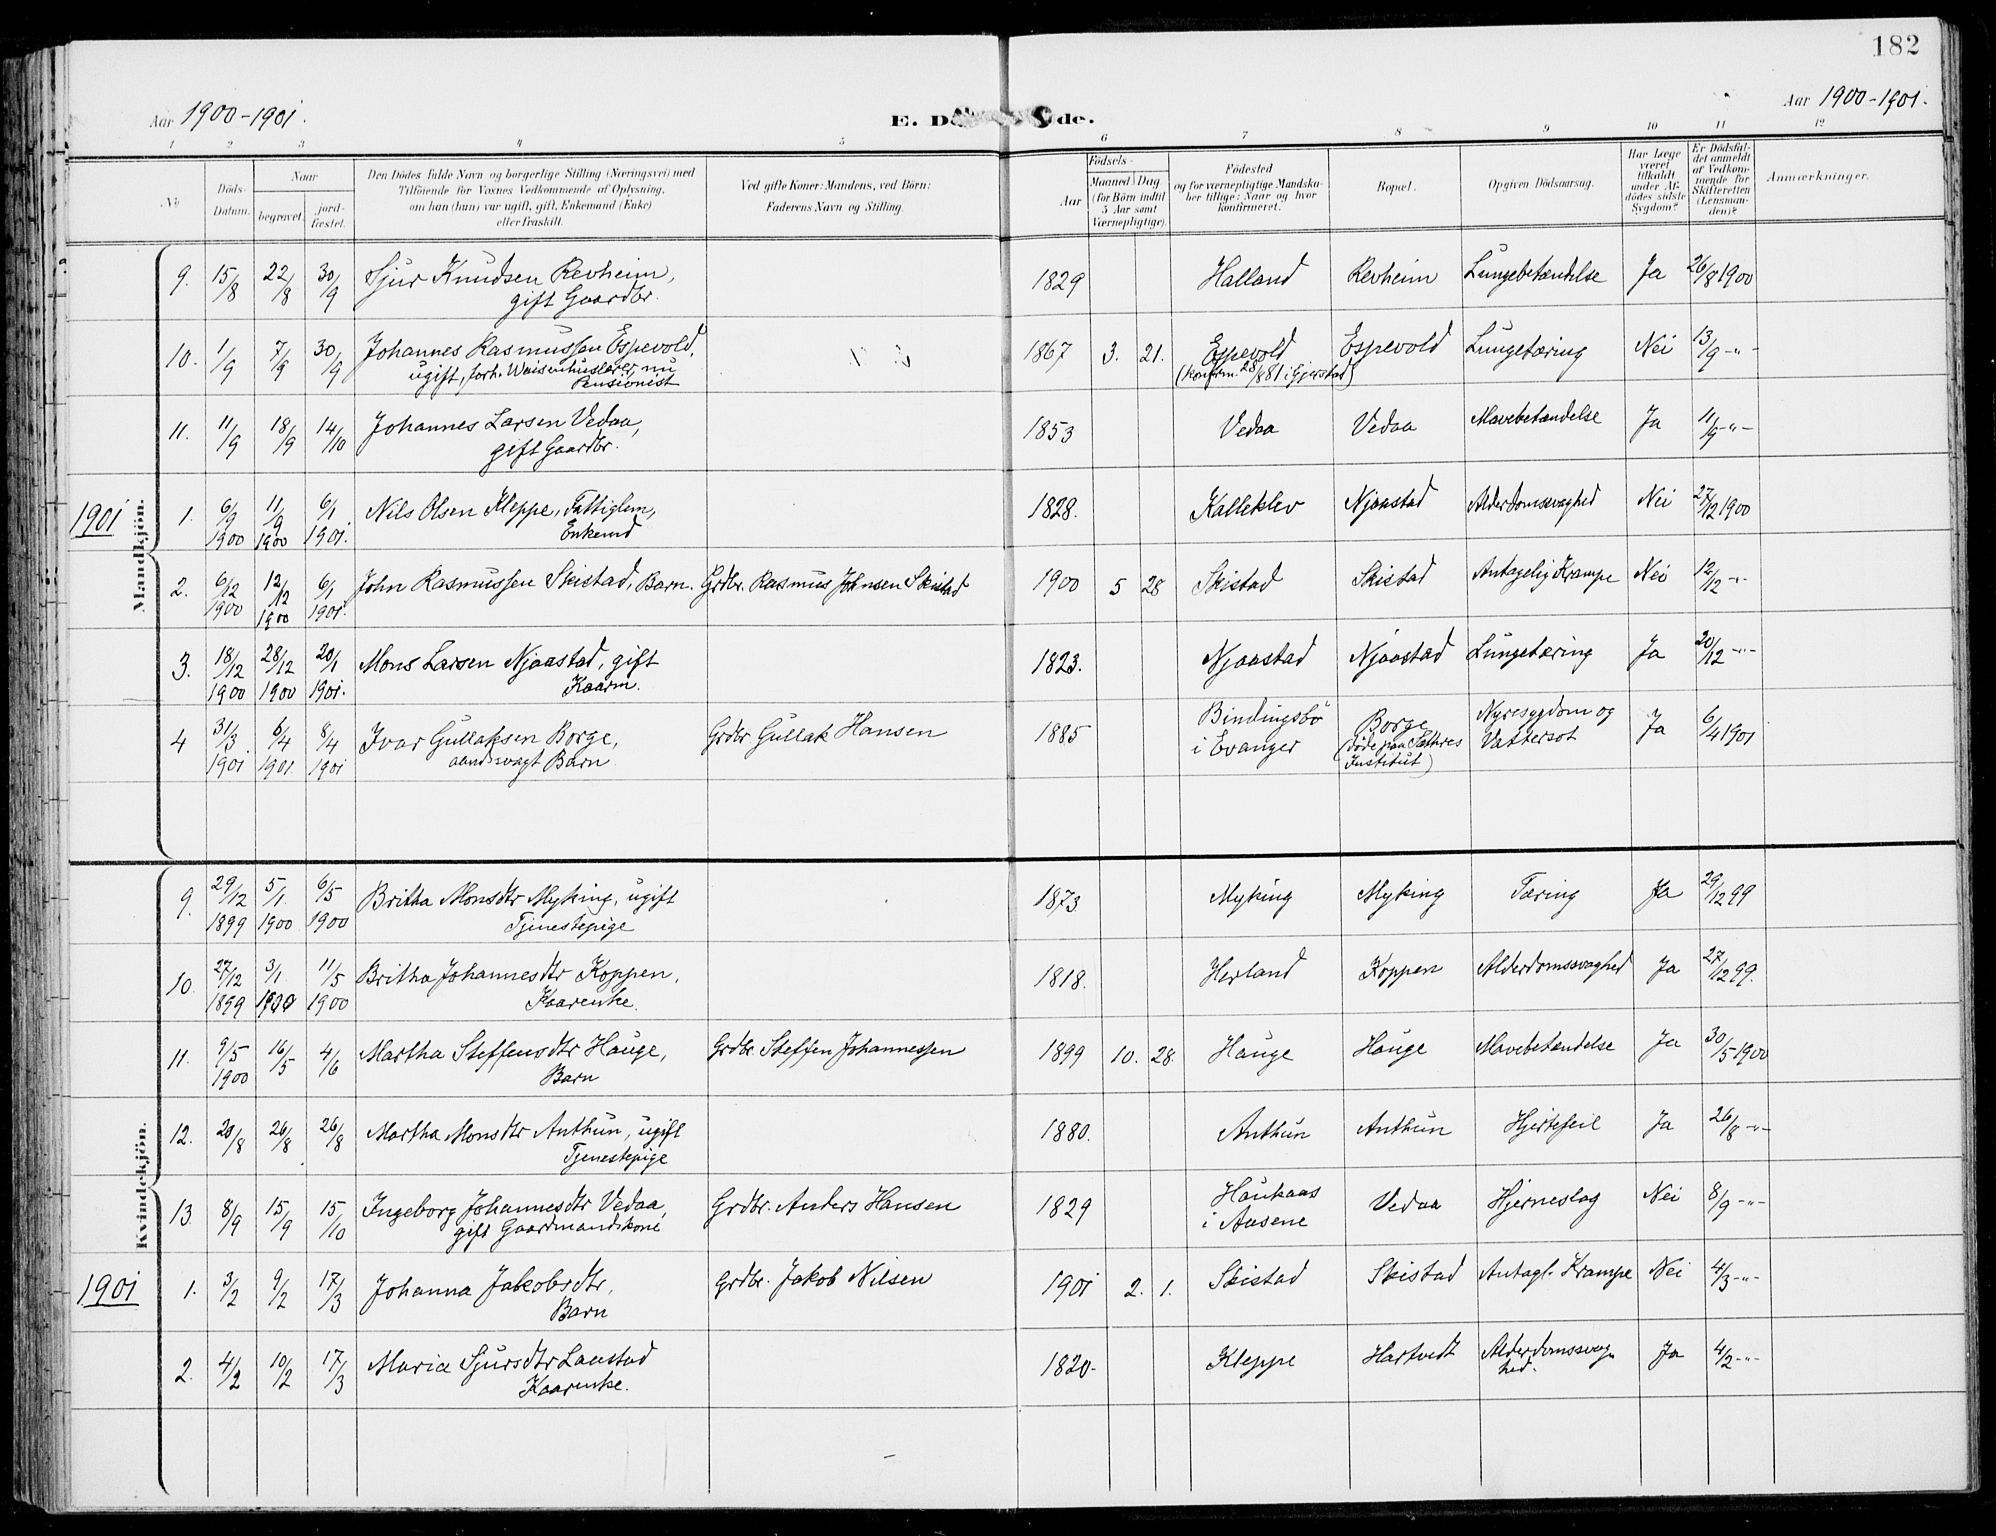 182
Aar 1900-1901.
E. Dö de.
Aar 1900-1901.
1 2 3 4 5 6 7 8 9 10 11 12
No
Döds-
Datum.
Naar
begravet.
jord-
fæstet.
Den Dödes fulde Navn og borgerlige Stilling (Næringsvei) med
Tilföiende for Voxnes Vedkommende af Oplysning,
om han (hun) var ugift, gift, Enkemand (Enke)
eller fraskilt.
Ved gifte Koner: Mandens, ved Börn:
Faderens Navn og Stilling.
Födsels-
Aar
Maaned
Dag
(for Börn indtil
5 Aar samt
Værnepligtige).
Födested
og for værnepligtige Mandska-
ber tillige: Naar og hvor
konfirmeret.
Bopæl.
Opgiven Dödsaarsag.
Har Læge
været
tilkaldt
under Af-
dödes sidste
Sygdom?
Er Dödsfal-
det anmeldt
af Vedkom-
mende for
Skifteretten
(Lensman-
den)?
Anmærkninger.
Mandkjön.
9. 15/8 22/8 30/9 Sjur Knudsen Revheim, 1829 Halland Revheim Lungebetændelse Ja 26/8 1900
gift Gaardbr.
10. 1/9 7/9 30/9 Johannes Rasmussen Espevold, 1867 3. 21. Espevold Espevold Lungetæring Nei 13/9 -"-
ugift, forh. Waisenhuslærer, nu (konfirm. 28/8 81 i Gjerstad)
Pensionist
11. 11/9 18/9 14/10 Johannes Larsen Vedaa, 1853 Vedaa Vedaa Mavebetændelse Ja 11/9 -"-
gift Gaardbr.
1901
1. 6/9 11/9 6/1 Nils Olsen Kleppe, Fattiglem, 1828. Kalleklev Njaastad Alderdomssvaghed Nei 27/12 1900
1900 1900 1901. Enkemd
2. 6/12 12/12 6/1 John Rasmussen Skistad, Barn. Grdbr. Rasmus Johnsen Skistad 1900 5 28 Skistad Skistad Antagelig Krampe Nei 12/12 -"-
1900 1900 1901.
3. 18/12 28/12 20/1 Mons Larsen Njaastad, gift 1823. Njaastad Njaastad Lungetæring Ja 20/12 -"-
1900 1900 1901. Kaarm.
4 31/3 6/4 8/4 Ivar Gullaksen Borge, Grdbr Gullak Hansen 1885 Bindingsbö Borge Nyresygdom og Ja 6/4 1901
1901 1901. 1901 aandssvagt Barn i Evanger (döde paa Sathres Vattersot
Institut)
Kvindekjön.
9. 29/12 5/1. 6/5 Britha Monsdtr Myking, ugift 1873. Myking Myking Tæring Ja 29/12 99
1899 1900 1900 Tjenestepige
10. 27/12 3/1 11/5 Britha Johannesdtr Koppen, 1818. Herland Koppen Alderdomssvaghed Ja 27/12 99.
1899 1900 1900 Kaarenke.
11. 9/5 16/5 4/6 Martha Steffensdtr Hauge, Grdbr. Steffen Johannessen 1899 10. 28. Hauge Hauge Mavebetændelse Ja 30/5 1900
1900 Barn
12. 20/8 26/8 26/8 Martha Monsdtr Anthun, ugift 1880. Anthun Anthun Hjertefeil Ja 26/8 -"-
Tjenestepige
13 8/9 15/9 15/10 Ingeborg Johannesdtr Vedaa, Grdbr. Anders Hansen 1829 Haukaas Vedaa Hjerneslag Nei 8/9 -"-
gift Gaardmandskone i Aasene
1901
1. 3/2 9/2 17/3 Johanna Jakobsdtr, Grdbr. Jakob Nilsen 1901 2. 1. Skistad Skistad Antagl. Krampe Nei 4/3 -"-
Barn
2. 4/2 10/2 17/3 Maria Sjursdtr Laastad 1820. Kleppe Hartvedt Alderdomssvag- Ja 4/2 -"-
Kaarenke. hed.